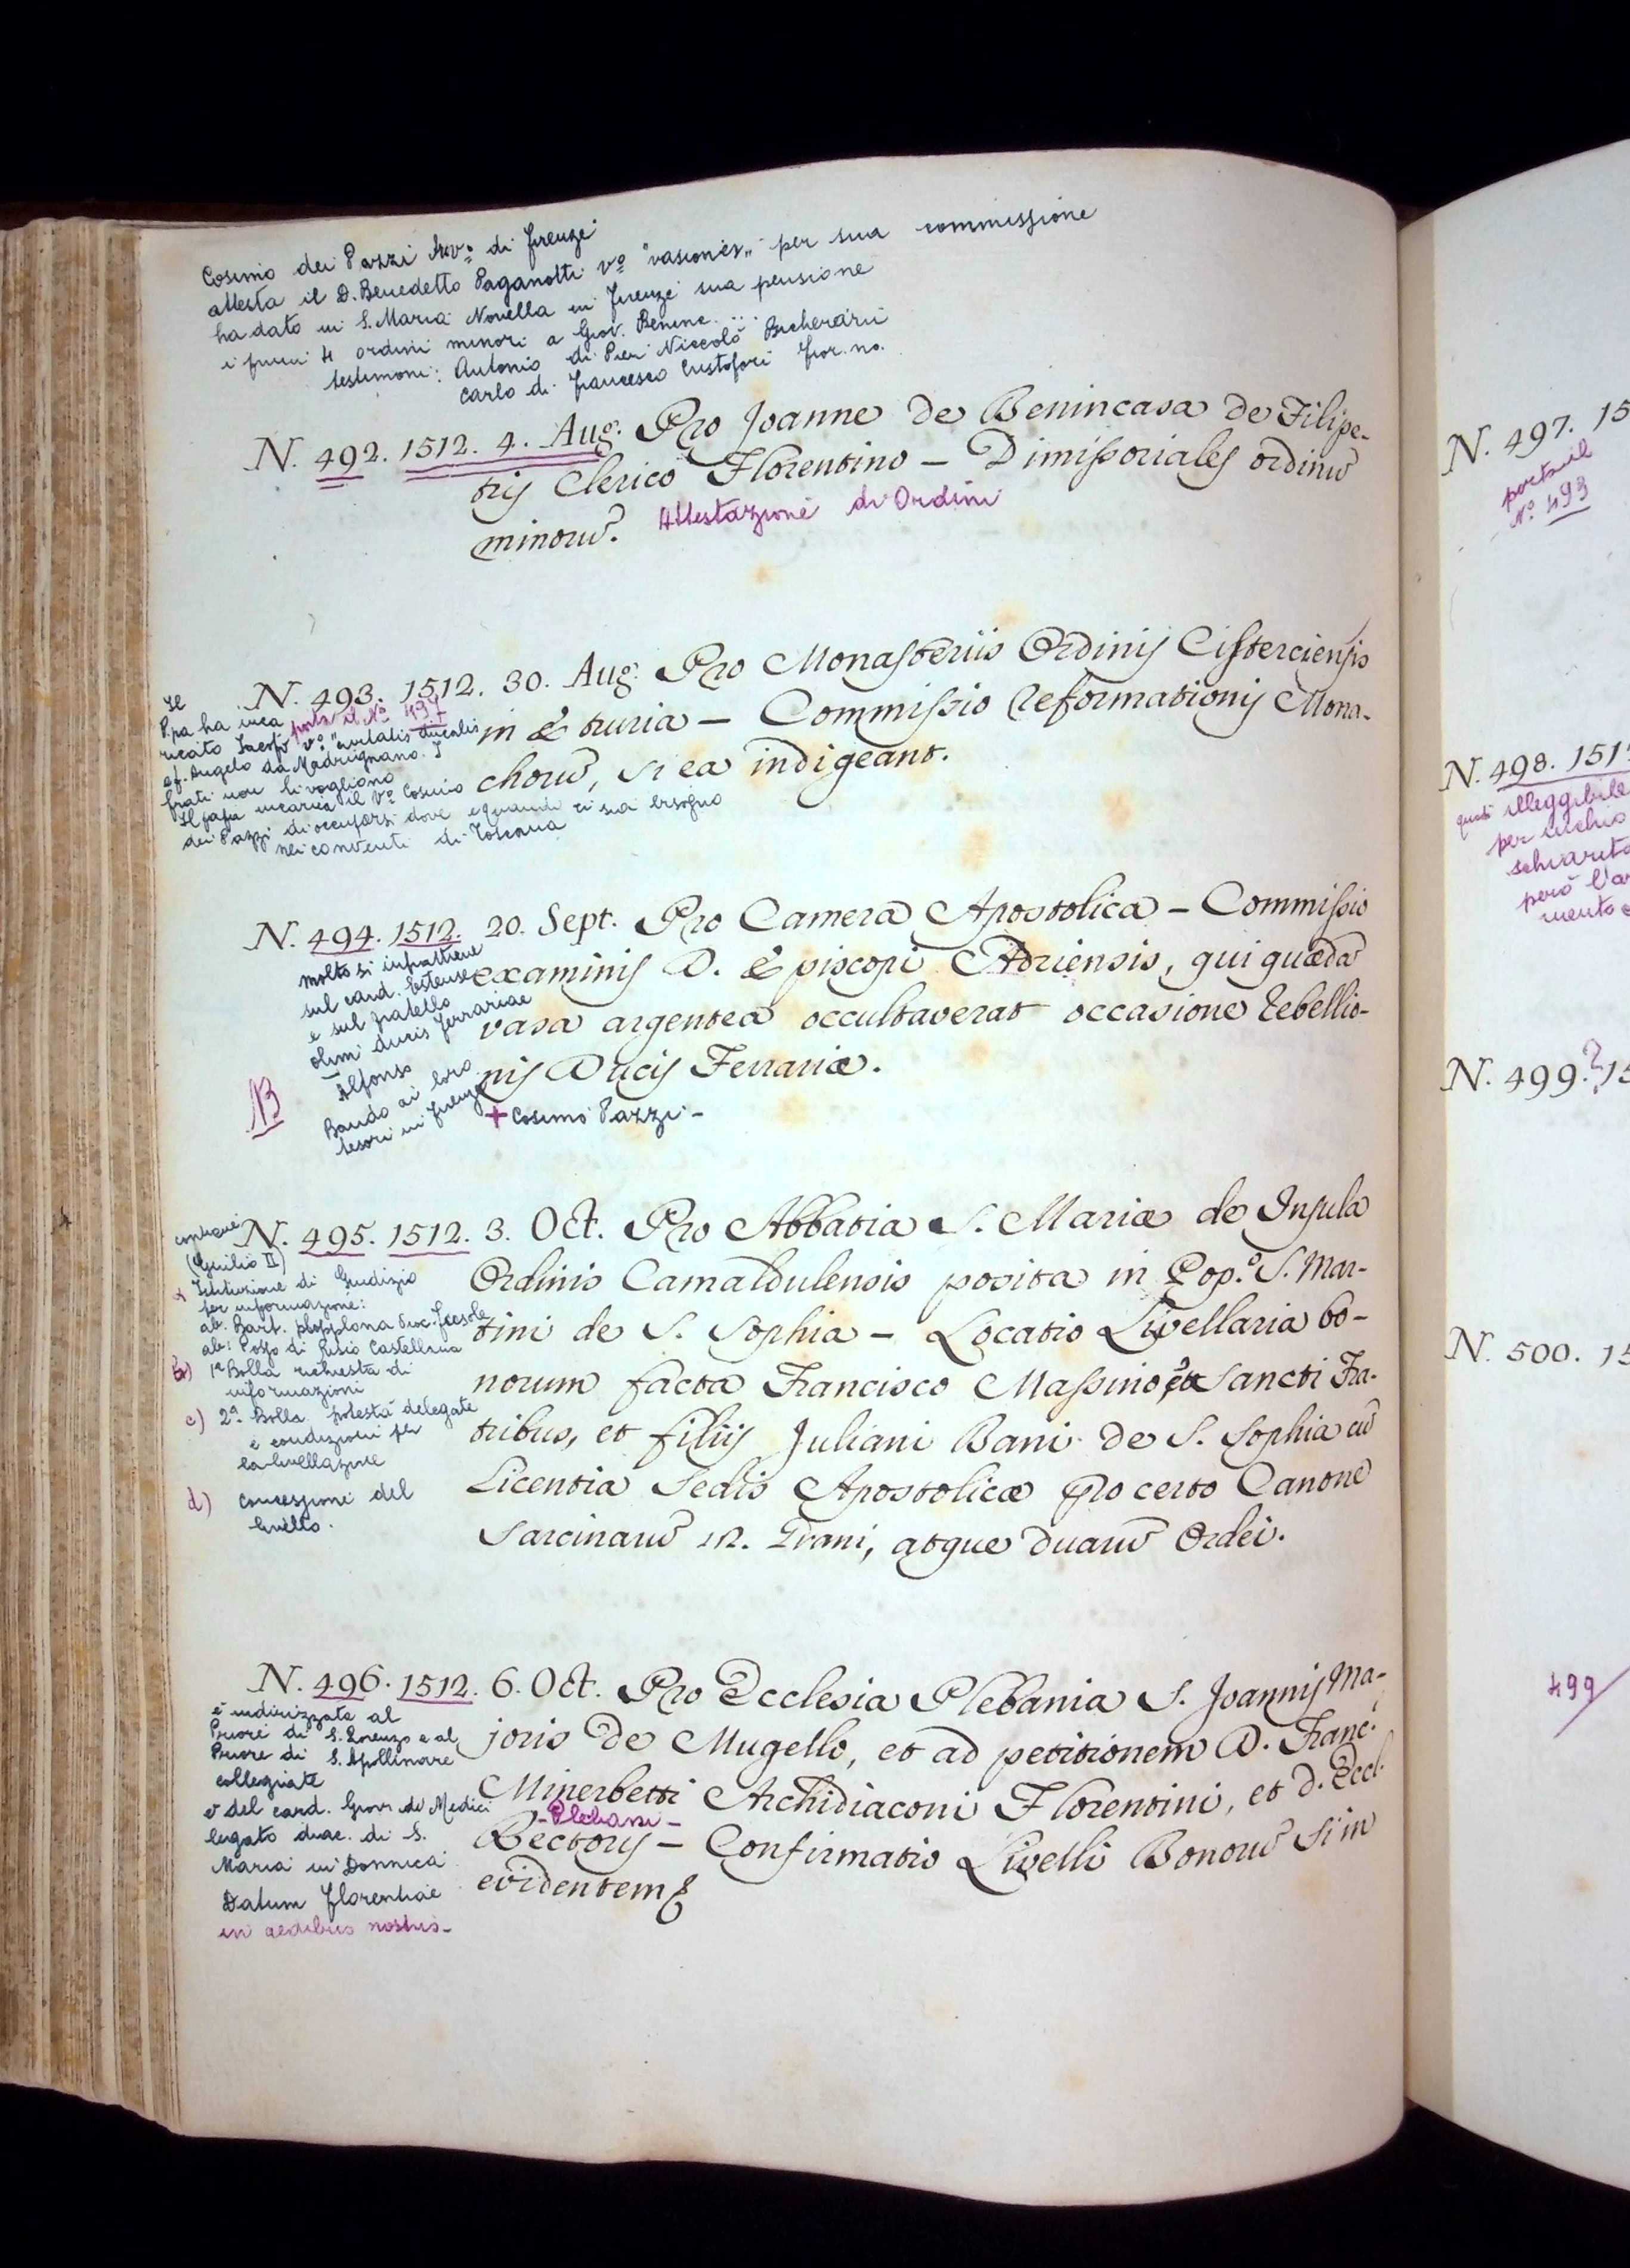 Cosimo dei Pazzi Arv.º di Firenze
attesta il D. Benedetto Paganotti vº "vasionēs" per sua commissione
ha dato in S. Maria Novella in Firenze sua pensione
i primi 4 ordini minori a Giov. Benenc. ...
testimoni: Antonio di Pier Niccolò
Carlo di Francesco Cristofori Fior.no.
N. 492. 1512. 4. Aug. Pro Joanne de Benincasa de Filipe-
tris Clerico Florentino – Dimissoriales ordinū
minorū.
Attestazione di Ordini
N. 493. 1512. 30. Aug. Pro Monasteriis Ordinis Cisterciensis
in Etruria – Commissio Reformationis Mona-
chorū, si ea indigeant.
porta il Nº 497
Il
Papa ha inca
ricato Jacopo vº "civitatis ducalis
ef. Angelo da Madrignano. I
frati non li vogliono
Il papa incarica il Vº Cosimo
dei Pazzi di occuparsi dove e quando ci sia bisogno
nei conventi di Toscana
N. 494. 1512. 20. Sept. Pro Camera Apostolica – Commissio
examinis D. Episcopi Adriensis, qui quædā
vasa argentea occultaverat occasione rebellio-
nis Ducis Ferrariæ.
+ Cosimo Pazzi –
molto si intrattiene
sul card. Estense
e sul fratello
olim ducis Ferrariae
Alfonso
Bando ai loro
tesori in Firenze
NB
N. 495. 1512. 3. Oct. Pro Abbatia S. Mariæ de Insula
Ordinis Camaldulensis posita in Pop.º S. Mar-
tini de S. Sophia – Locatio Livellaria bo-
norum facta Francisco Massino, et Sancti Fra-
tribus, et filiis Juliani Bani de S. Sophia cū
Licentia Sedis Apostolicæ pro certo Canone
Sarcinarū 12. Grani, atque duarū Ordei.
contiene
(Giulio II)
Istituzione di Giudizio
per informazione:
ab. Bart. dioc. Fiesole
b) 1ª Bolla richiesta di
informazioni
c) 2ª Bolla potestà delegate
e condizioni per
la livellazione
d) concessione del
livello.
N. 496. 1512. 6. Oct. Pro Ecclesia Plebania S. Joannis Ma-
joris de Mugello, et ad petitionem D. Franc.i
Minerbetti Archidiaconi Florentini, et d. Eccl.
– Plebani –
Rectoris – Confirmatio Livelli Bonorū si in
evidentem &
è indirizzata al
Priore di S. Lorenzo e al
Priore di S. Apollinare
collegiate
è del card. Giov. de Medici
legato diac. di S.
Maria in Donnica
Datum Florentiae
in aedibus nostris –
N. 497. 15
porta il
Nº 493
N. 498. 151
quasi illeggibile
per inchio
schiarito
però l'ar
mento e
N. 499.? 15
N. 500. 15
499